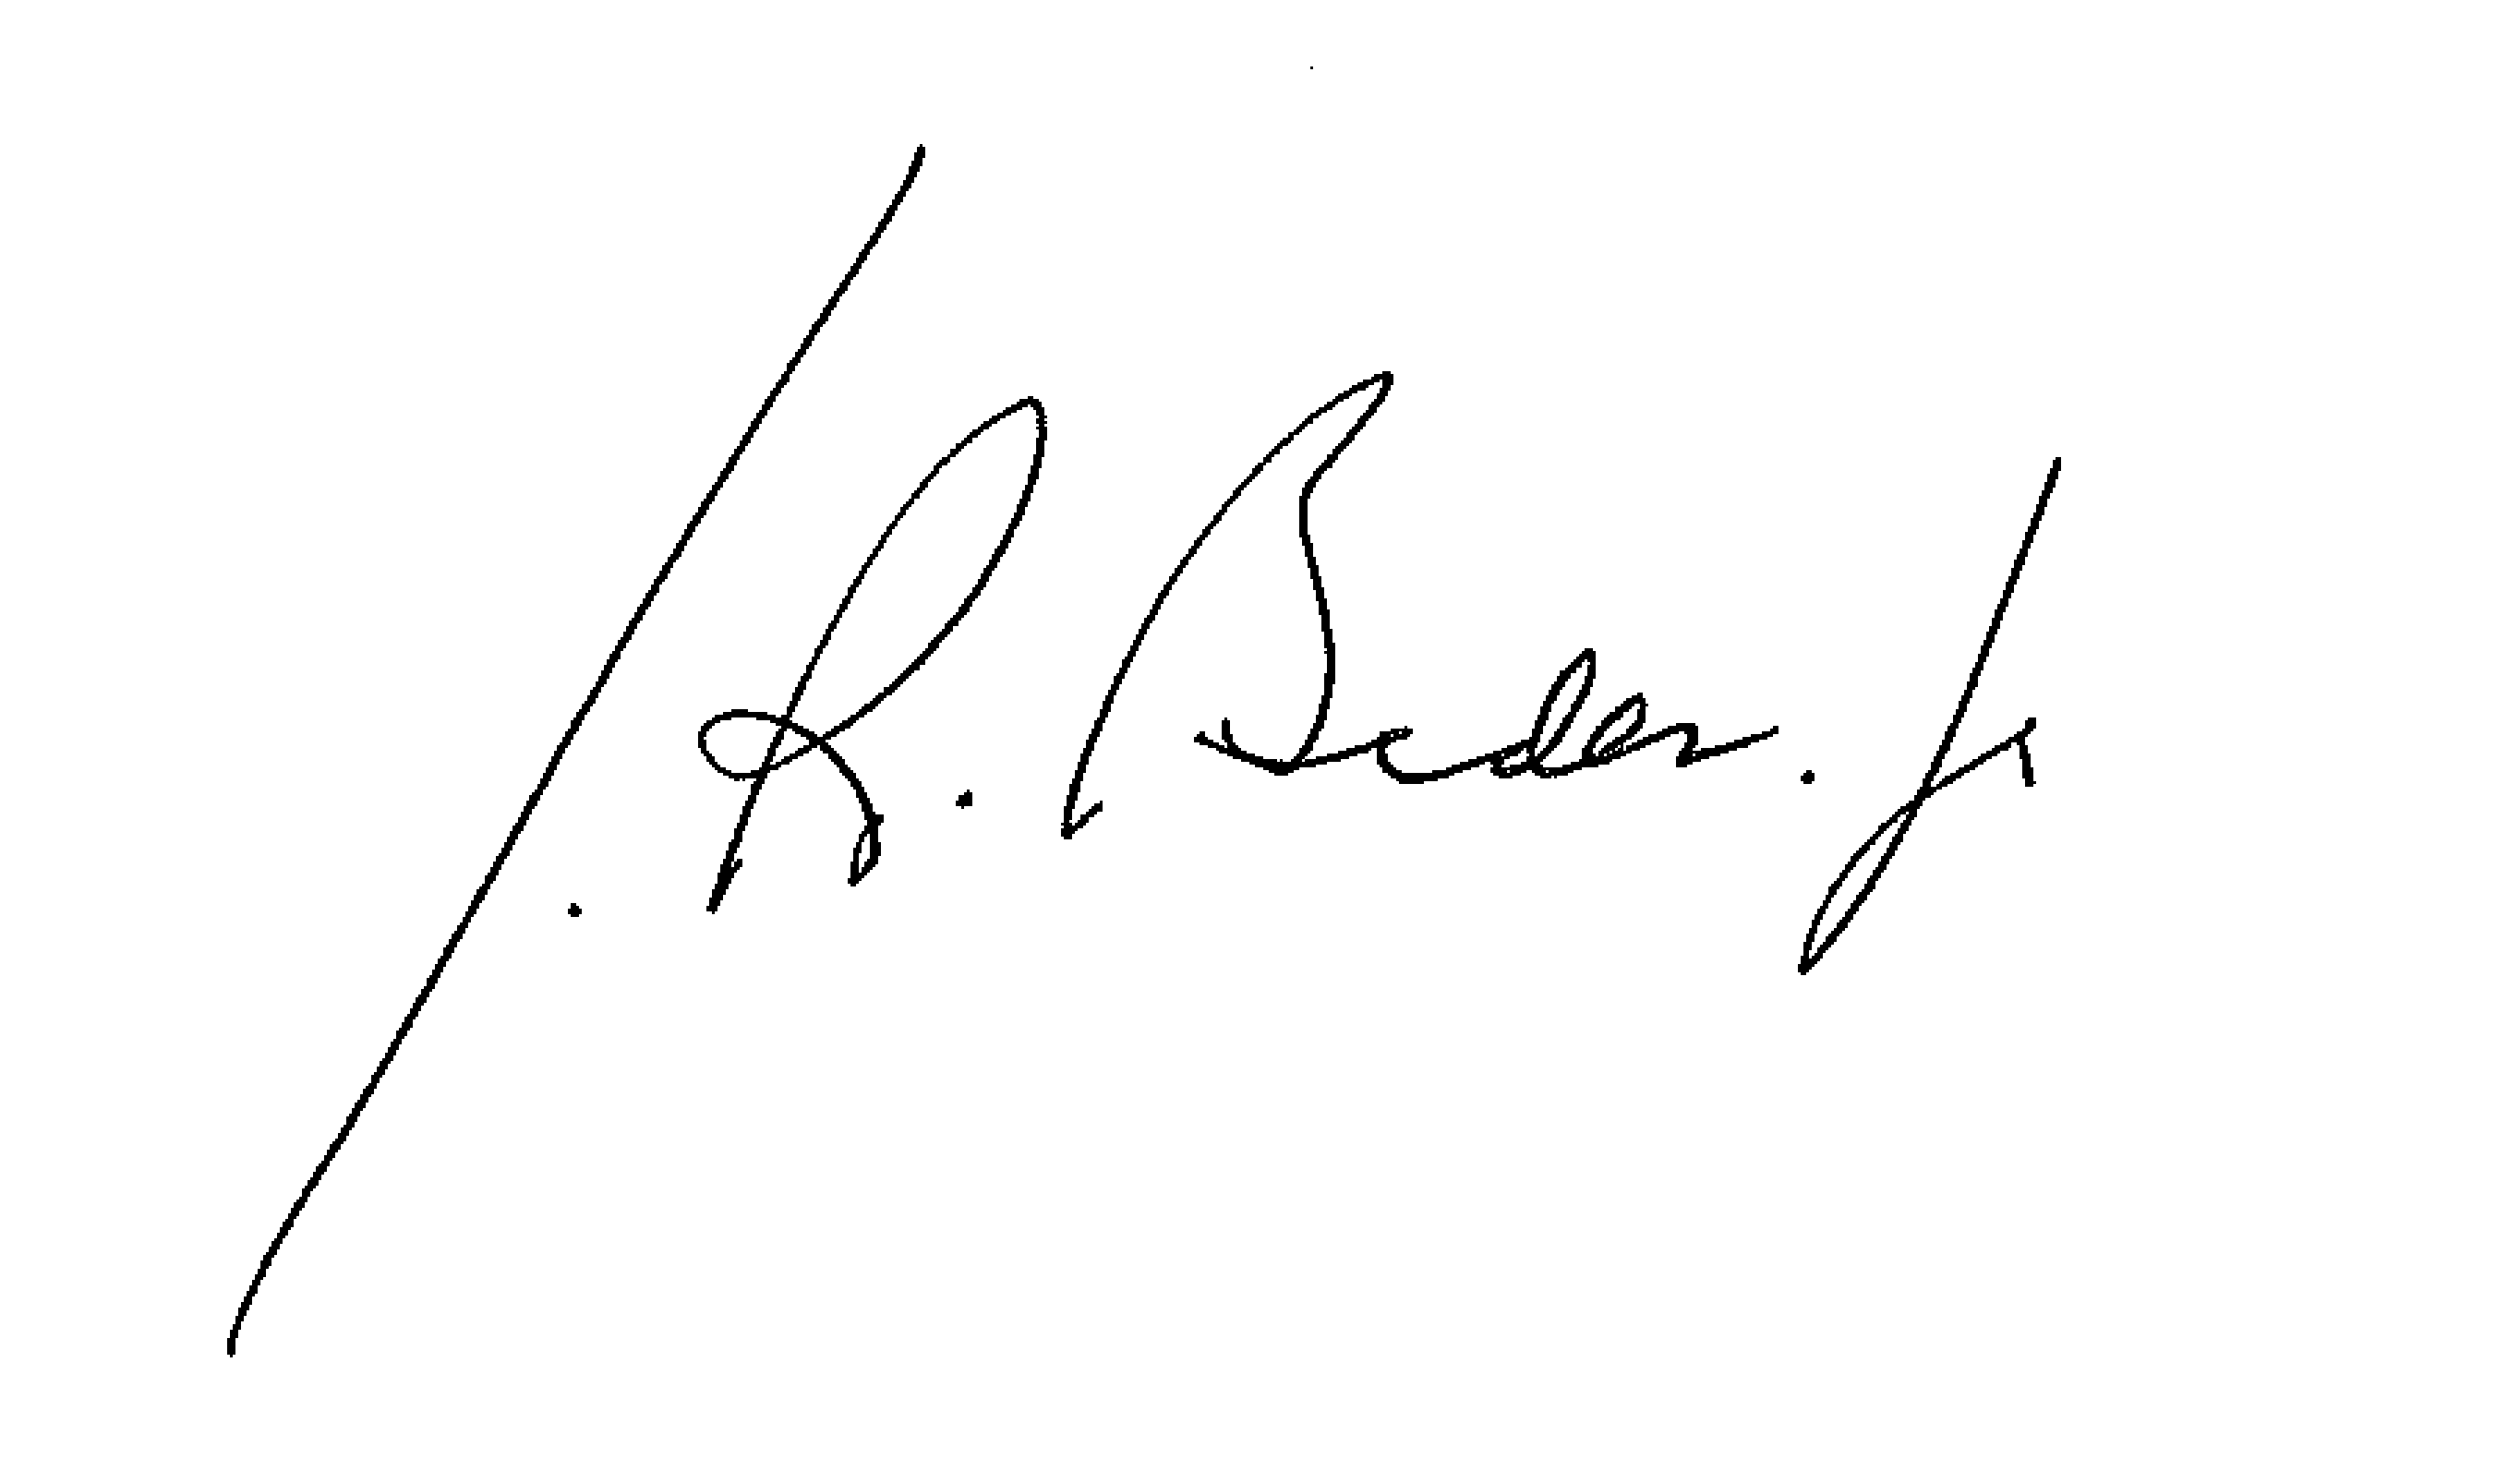 J. R. Biden. Jr